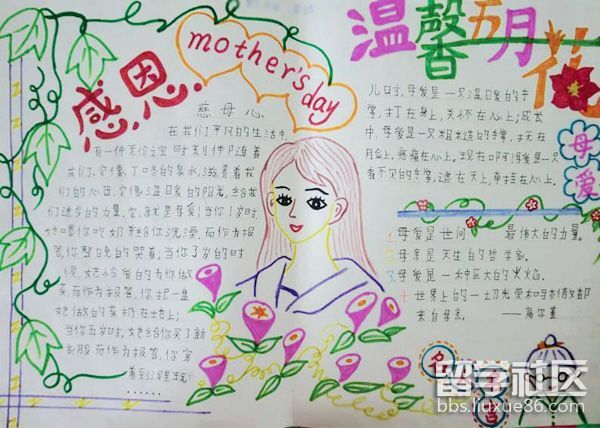 感恩
mother's day
温馨五月花
慈母心
在我们平凡的生活中,
有一件无价之宝时刻伴随着
我们,它像丁冬的泉水,滋养着我
们的心田。它像温暖的阳光,给我
们进步的力量。它,就是母爱!当你1岁时
她喂你吃奶并给你洗澡,而作为报
答,你整晚的哭着;当你了岁的时
候,她
菜,而作为报答,你把一盘
她做的菜扔在地上;
当你五岁时,她给你买了新
衣服而作为报答,你穿
着到泥
儿时,母爱是一只温暖的手
掌,打在身上,关怀在心上;成长
中,母爱是一只粗糙的手掌,
疼痛在心上。现在
看不见的手掌,遮在天上,牵挂在心上。
母爱
1.母爱是世间最伟大的力量。
2.母亲是天生的哲学家。
3.母爱是一种巨大的火焰。
4.世界上的一切光荣和
来自母亲。 ——高尔基
留学社区
bbs.liuxue86.com